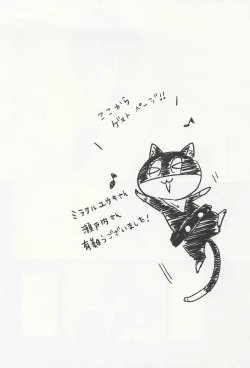 ここから
ゲストページ!!
ミラクルユウキさん
瀬戸内さん
有難うございました!